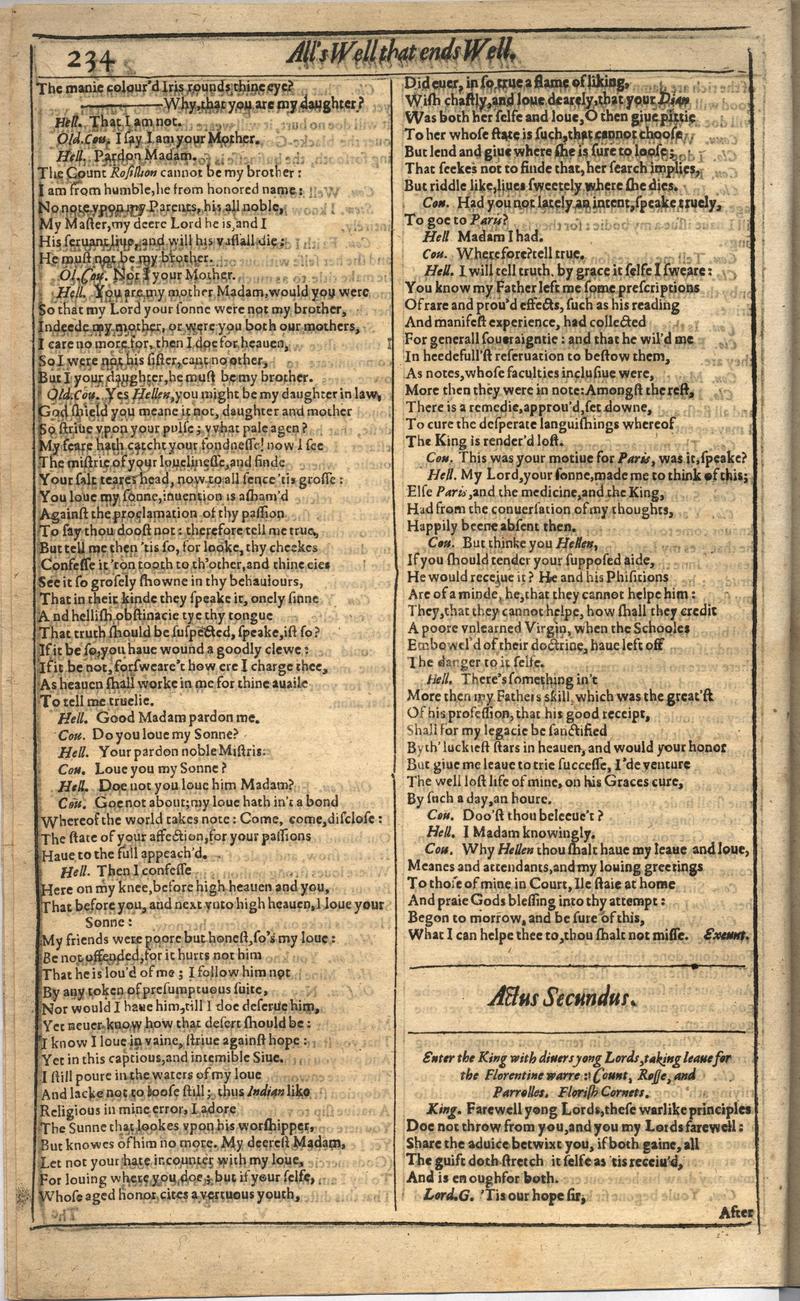 234
All's Well that ends Well.
The manie colour'd Iris rounds thine eye?
Why, that you are my daughter?
Hell. That I am not.
Old.Cou. I say I am your Mother.
Hell. Pardon Madam.
The Count Rosillion cannot be my brother:
I am from humble, he from honored name:
No note vpon my Parents, his all noble,
My Master, my deere Lord he is, and I
His seruant liue, and will his vassall die:
He must not be my brother.
Ol.Cou. Nor I your Mother.
Hell. You are my mother Madam, would you were
So that my Lord your sonne were not my brother,
Indeede my mother, or were you both our mothers,
I care no more for, then I doe for heauen,
So I were not his sister, cant no other,
But I your daughter, he must be my brother.
Old.Cou. Yes Hellen, you might be my daughter in law,
God shield you meane it not, daughter and mother
So striue vpon your pulse; vvhat pale agen?
My feare hath catcht your fondnesse! now I see
The mistrie of your louelinesse, and finde
Your salt teares head, now to all sence 'tis grosse:
You loue my sonne, inuention is asham'd
Against the proclamation of thy passion
To say thou doost not: therefore tell me true,
But tell me then 'tis so, for looke, thy cheekes
Confesse it 'ton tooth to th'other, and thine eies
See it so grosely showne in thy behauiours,
That in their kinde they speake it, onely sinne
And hellish obstinacie tye thy tongue
That truth should be suspected, speake, ist so?
If it be so, you haue wound a goodly clewe:
If it be not, forsweare't how ere I charge thee,
As heauen shall worke in me for thine auaile
To tell me truelie.
Hell. Good Madam pardon me.
Cou. Do you loue my Sonne?
Hell. Your pardon noble Mistris.
Cou. Loue you my Sonne?
Hell. Doe not you loue him Madam?
Cou. Goe not about; my loue hath in't a bond
Whereof the world takes note: Come, come, disclose:
The state of your affection, for your passions
Haue to the full appeach'd.
Hell. Then I confesse
Here on my knee, before high heauen and you,
That before you, and next vnto high heauen, I loue your
Sonne:
My friends were poore but honest, so's my loue:
Be not offended, for it hurts not him
That he is lou'd of me; I follow him not
By any token of presumptuous suite,
Nor would I haue him, till I doe deserue him,
Yet neuer know how that desert should be:
I know I loue in vaine, striue against hope:
Yet in this captious, and intemible Siue.
I still poure in the waters of my loue
And lacke not to loose still; thus Indian like
Religious in mine error, I adore
The Sunne that lookes vpon his worshipper,
But knowes of him no more. My deerest Madam,
Let not your hate incounter with my loue,
For louing where you doe; but if your selfe,
Whose aged honor cites a vertuous youth,
Did euer, in so true a flame of liking,
Wish chastly, and loue dearely, that your Dian
Was both her selfe and loue, O then giue pittie
To her whose state is such, that cannot choose
But lend and giue where she is sure to loose;
That seekes not to finde that, her search implies,
But riddle like, liues sweetely where she dies.
Cou. Had you not lately an intent, speake truely,
To goe to Paris?
Hell. Madam I had.
Cou. Wherefore? tell true.
Hell. I will tell truth, by grace it selfe I sweare:
You know my Father left me some prescriptions
Of rare and prou'd effects, such as his reading
And manifest experience, had collected
For generall soueraigntie: and that he wil'd me
In heedefull'st reseruation to bestow them,
As notes, whose faculties inclusiue were,
More then they were in note: Amongst the rest,
There is a remedie, approu'd, set downe,
To cure the desperate languishings whereof
The King is render'd lost.
Cou. This was your motiue for Paris, was it, speake?
Hell. My Lord, your sonne, made me to think of this;
Else Paris, and the medicine, and the King,
Had from the conuersation of my thoughts,
Happily beene absent then.
Cou. But thinke you Hellen,
If you should tender your supposed aide,
He would receiue it? He and his Phisitions
Are of a minde, he, that they cannot helpe him:
They, that they cannot helpe, how shall they credit
A poore vnlearned Virgin, when the Schooles
Embowel'd of their doctrine, haue left off
The danger to it selfe.
Hell. There's something in't
More then my Fathers skill, which was the great'st
Of his profession, that his good receipt,
Shall for my legacie be sanctified
Byth' luckiest stars in heauen, and would your honor
But giue me leaue to trie successe, I'de venture
The well lost life of mine, on his Graces cure,
By such a day, an houre.
Cou. Doo'st thou beleeue't?
Hell. I Madam knowingly.
Cou. Why Hellen thou shalt haue my leaue and loue,
Meanes and attendants, and my louing greetings
To those of mine in Court, Ile staie at home
And praie Gods blessing into thy attempt:
Begon to morrow, and be sure of this,
What I can helpe thee to, thou shalt not misse. Exeunt.
Actus Secundus.
Enter the King with diuers yong Lords, taking leaue for
the Florentine warre: Count, Rosse, and
Parrolles. Florish Cornets.
King. Farewell yong Lords, these warlike principles
Doe not throw from you, and you my Lords farewell:
Share the aduice betwixt you, if both gaine, all
The guift doth stretch it selfe as 'tis receiu'd,
And is enough for both.
Lord.G. 'Tis our hope sir,
After